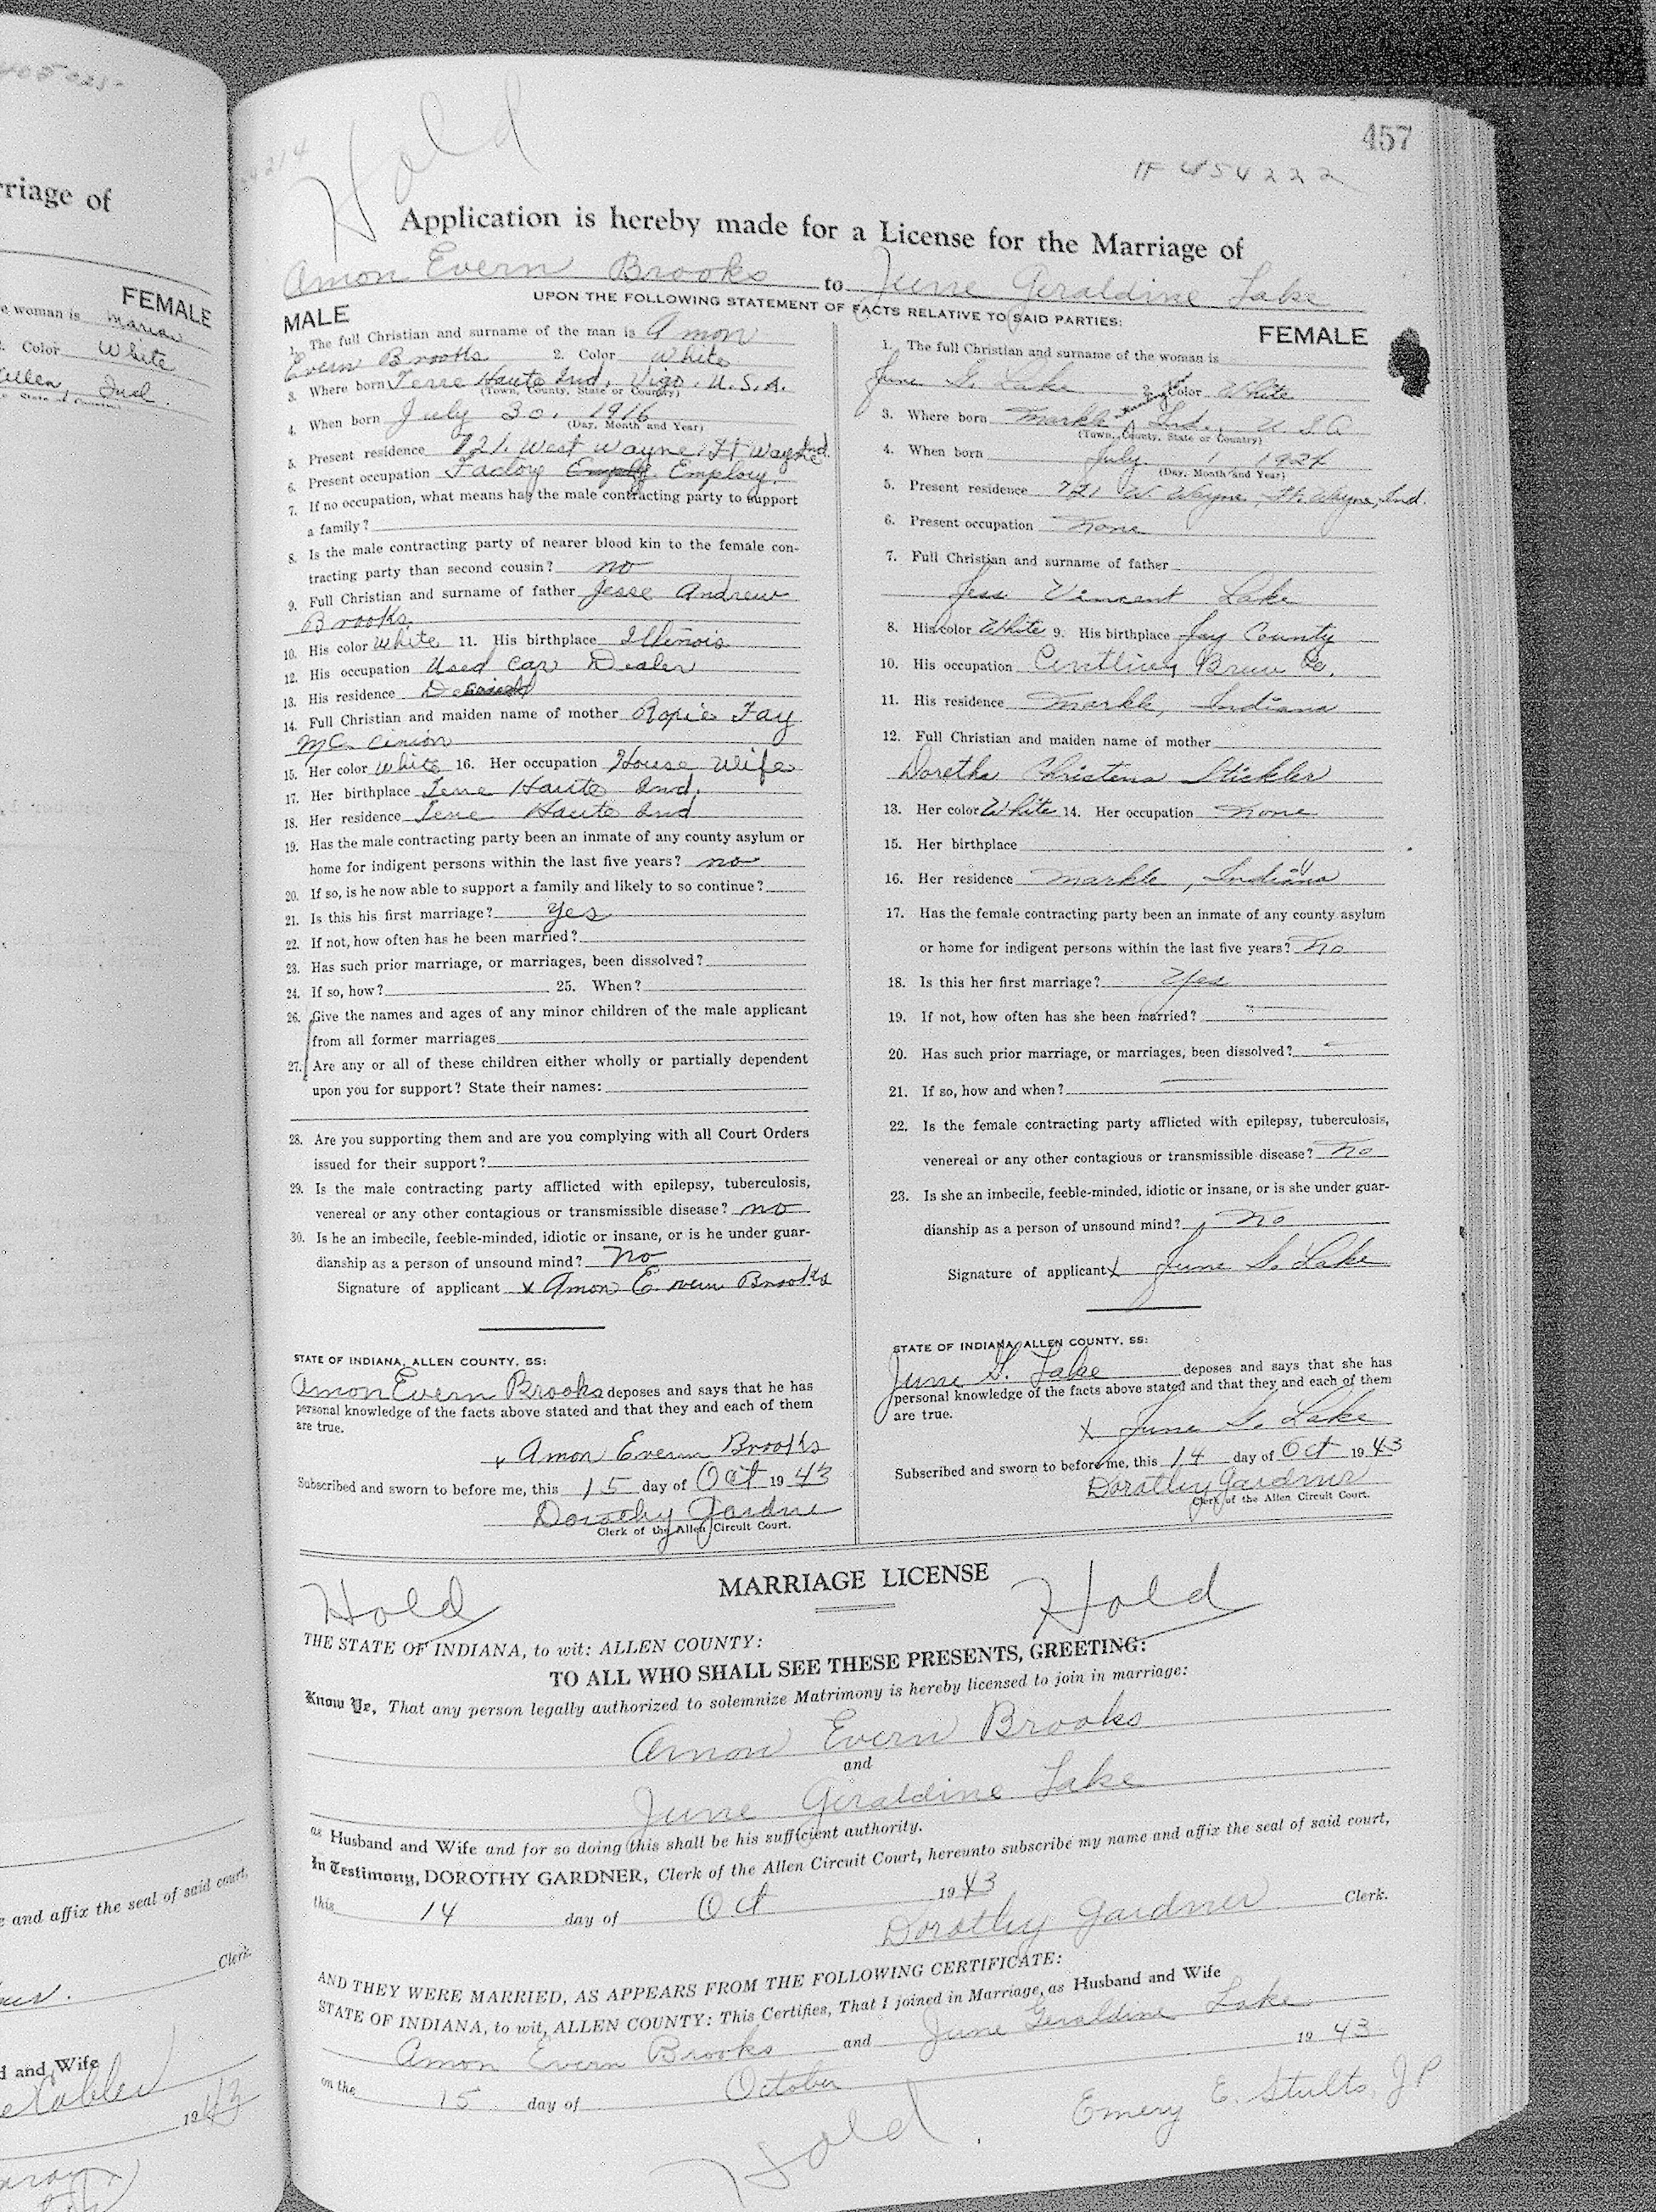 457
Hold
Application is hereby made for a License for the Marriage of
Amon Evern Brooks to June Geraldine Lake
UPON THE FOLLOWING STATEMENT OF FACTS RELATIVE TO SAID PARTIES:
MALE
1. The full Christian and surname of the man is Amon
Evern Brooks 2. Color White
3. Where born Terre Haute Ind, Vigo, U.S.A.
(Town, County, State or Country)
4. When born July 30, 1916
(Day, Month and Year)
5. Present residence 721 West Wayne, Ft Wayne Ind.
6. Present occupation Factory Employ.
7. If no occupation, what means has the male contracting party to support
a family?
8. Is the male contracting party of nearer blood kin to the female con-
tracting party than second cousin? no
9. Full Christian and surname of father Jesse Andrew
Brooks
10. His color White 11. His birthplace Illinois
12. His occupation Used Car Dealer
13. His residence
14. Full Christian and maiden name of mother Fay
15. Her color White 16. Her occupation House Wife
17. Her birthplace Terre Haute Ind.
18. Her residence Terre Haute Ind
19. Has the male contracting party been an inmate of any county asylum or
home for indigent persons within the last five years? no
20. If so, is he now able to support a family and likely to so continue?
21. Is this his first marriage? Yes
22. If not, how often has he been married?
23. Has such prior marriage, or marriages, been dissolved?
24. If so, how? 25. When?
26. Give the names and ages of any minor children of the male applicant
from all former marriages
27. Are any or all of these children either wholly or partially dependent
upon you for support? State their names:
28. Are you supporting them and are you complying with all Court Orders
issued for their support?
29. Is the male contracting party afflicted with epilepsy, tuberculosis,
venereal or any other contagious or transmissible disease? no
30. Is he an imbecile, feeble-minded, idiotic or insane, or is he under guar-
dianship as a person of unsound mind? no
Signature of applicant x Amon Evern Brooks
STATE OF INDIANA, ALLEN COUNTY, SS:
Amon Evern Brooks deposes and says that he has
personal knowledge of the facts above stated and that they and each of them
are true.
x Amon Evern Brooks
Subscribed and sworn to before me, this 15 day of Oct 1943
Dorothy Gardner
Clerk of the Allen Circuit Court.
FEMALE
1. The full Christian and surname of the woman is
June G. Lake 2. Color White
3. Where born Markle Ind., U S A
(Town, County, State or Country)
4. When born July 1 1924
(Day, Month and Year)
5. Present residence 721 W. Wayne, Ft. Wayne, Ind.
6. Present occupation none
7. Full Christian and surname of father
Jess Vincent Lake
8. His color White 9. His birthplace Jay County
10. His occupation Centlivre Brew Co.
11. His residence Markle, Indiana
12. Full Christian and maiden name of mother
Doretha Christena Stickler
13. Her color White 14. Her occupation none
15. Her birthplace
16. Her residence Markle, Indiana
17. Has the female contracting party been an inmate of any county asylum
or home for indigent persons within the last five years? no
18. Is this her first marriage? Yes
19. If not, how often has she been married?
20. Has such prior marriage, or marriages, been dissolved?
21. If so, how and when?
22. Is the female contracting party afflicted with epilepsy, tuberculosis,
venereal or any other contagious or transmissible disease? no
23. Is she an imbecile, feeble-minded, idiotic or insane, or is she under guar-
dianship as a person of unsound mind? no
Signature of applicant x June G. Lake
STATE OF INDIANA, ALLEN COUNTY, SS:
June G. Lake deposes and says that she has
personal knowledge of the facts above stated and that they and each of them
are true.
x June G. Lake
Subscribed and sworn to before me, this 14 day of Oct 1943
Dorothy Gardner
Clerk of the Allen Circuit Court.
MARRIAGE LICENSE
Hold Hold
THE STATE OF INDIANA, to wit: ALLEN COUNTY:
TO ALL WHO SHALL SEE THESE PRESENTS, GREETING:
Know Ye, That any person legally authorized to solemnize Matrimony is hereby licensed to join in marriage:
Amon Evern Brooks
and
June Geraldine Lake
as Husband and Wife and for so doing this shall be his sufficient authority.
In Testimony, DOROTHY GARDNER, Clerk of the Allen Circuit Court, hereunto subscribe my name and affix the seal of said court,
this 14 day of Oct 1943
Dorothy Gardner Clerk.
AND THEY WERE MARRIED, AS APPEARS FROM THE FOLLOWING CERTIFICATE:
STATE OF INDIANA, to wit, ALLEN COUNTY: This Certifies, That I joined in Marriage, as Husband and Wife
Amon Evern Brooks and June Geraldine Lake
on the 15 day of October 1943
Emery E. Stults, J P
Hold